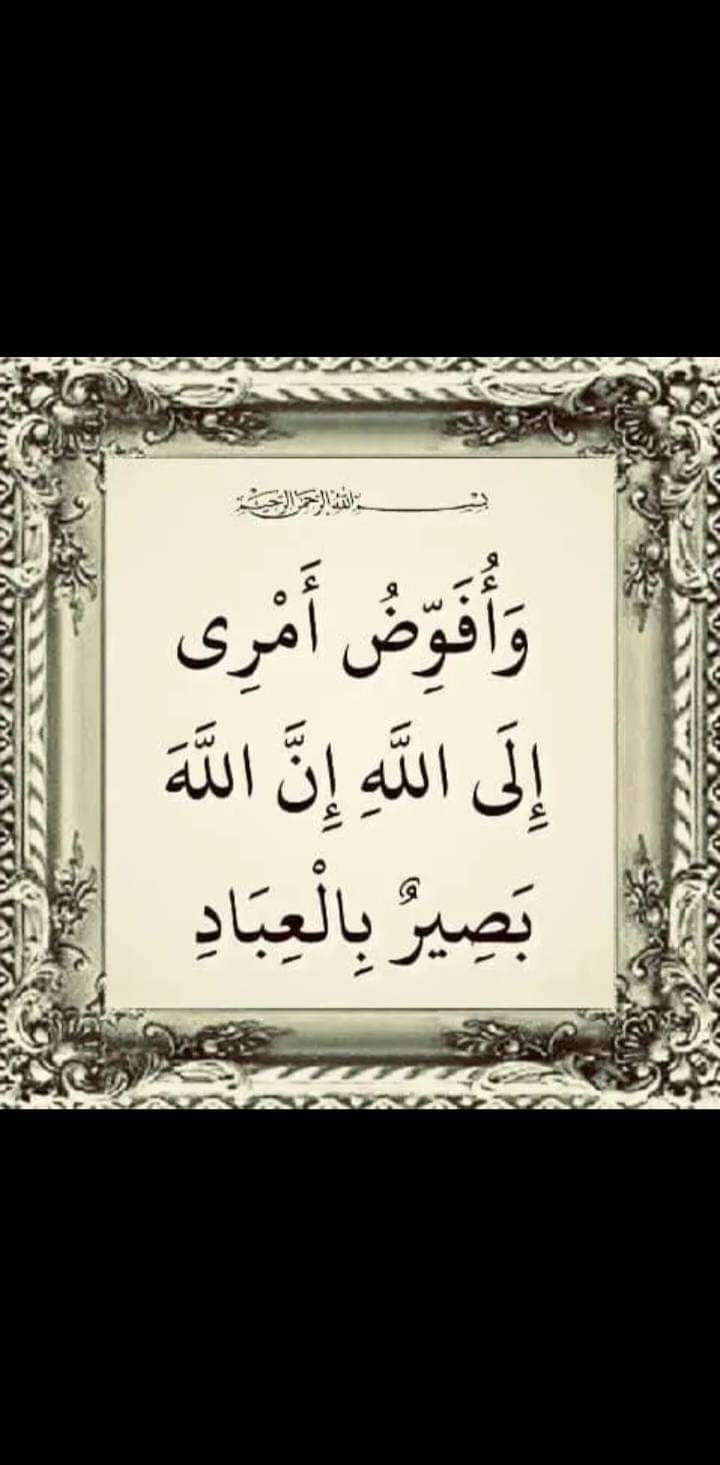 بسم الله الرحمن الرحيم
وَأُفَوِّضُ أَمْرِى
إِلَى اللَّهِ إِنَّ اللَّهَ
بَصِيرٌ بِالْعِبَادِ